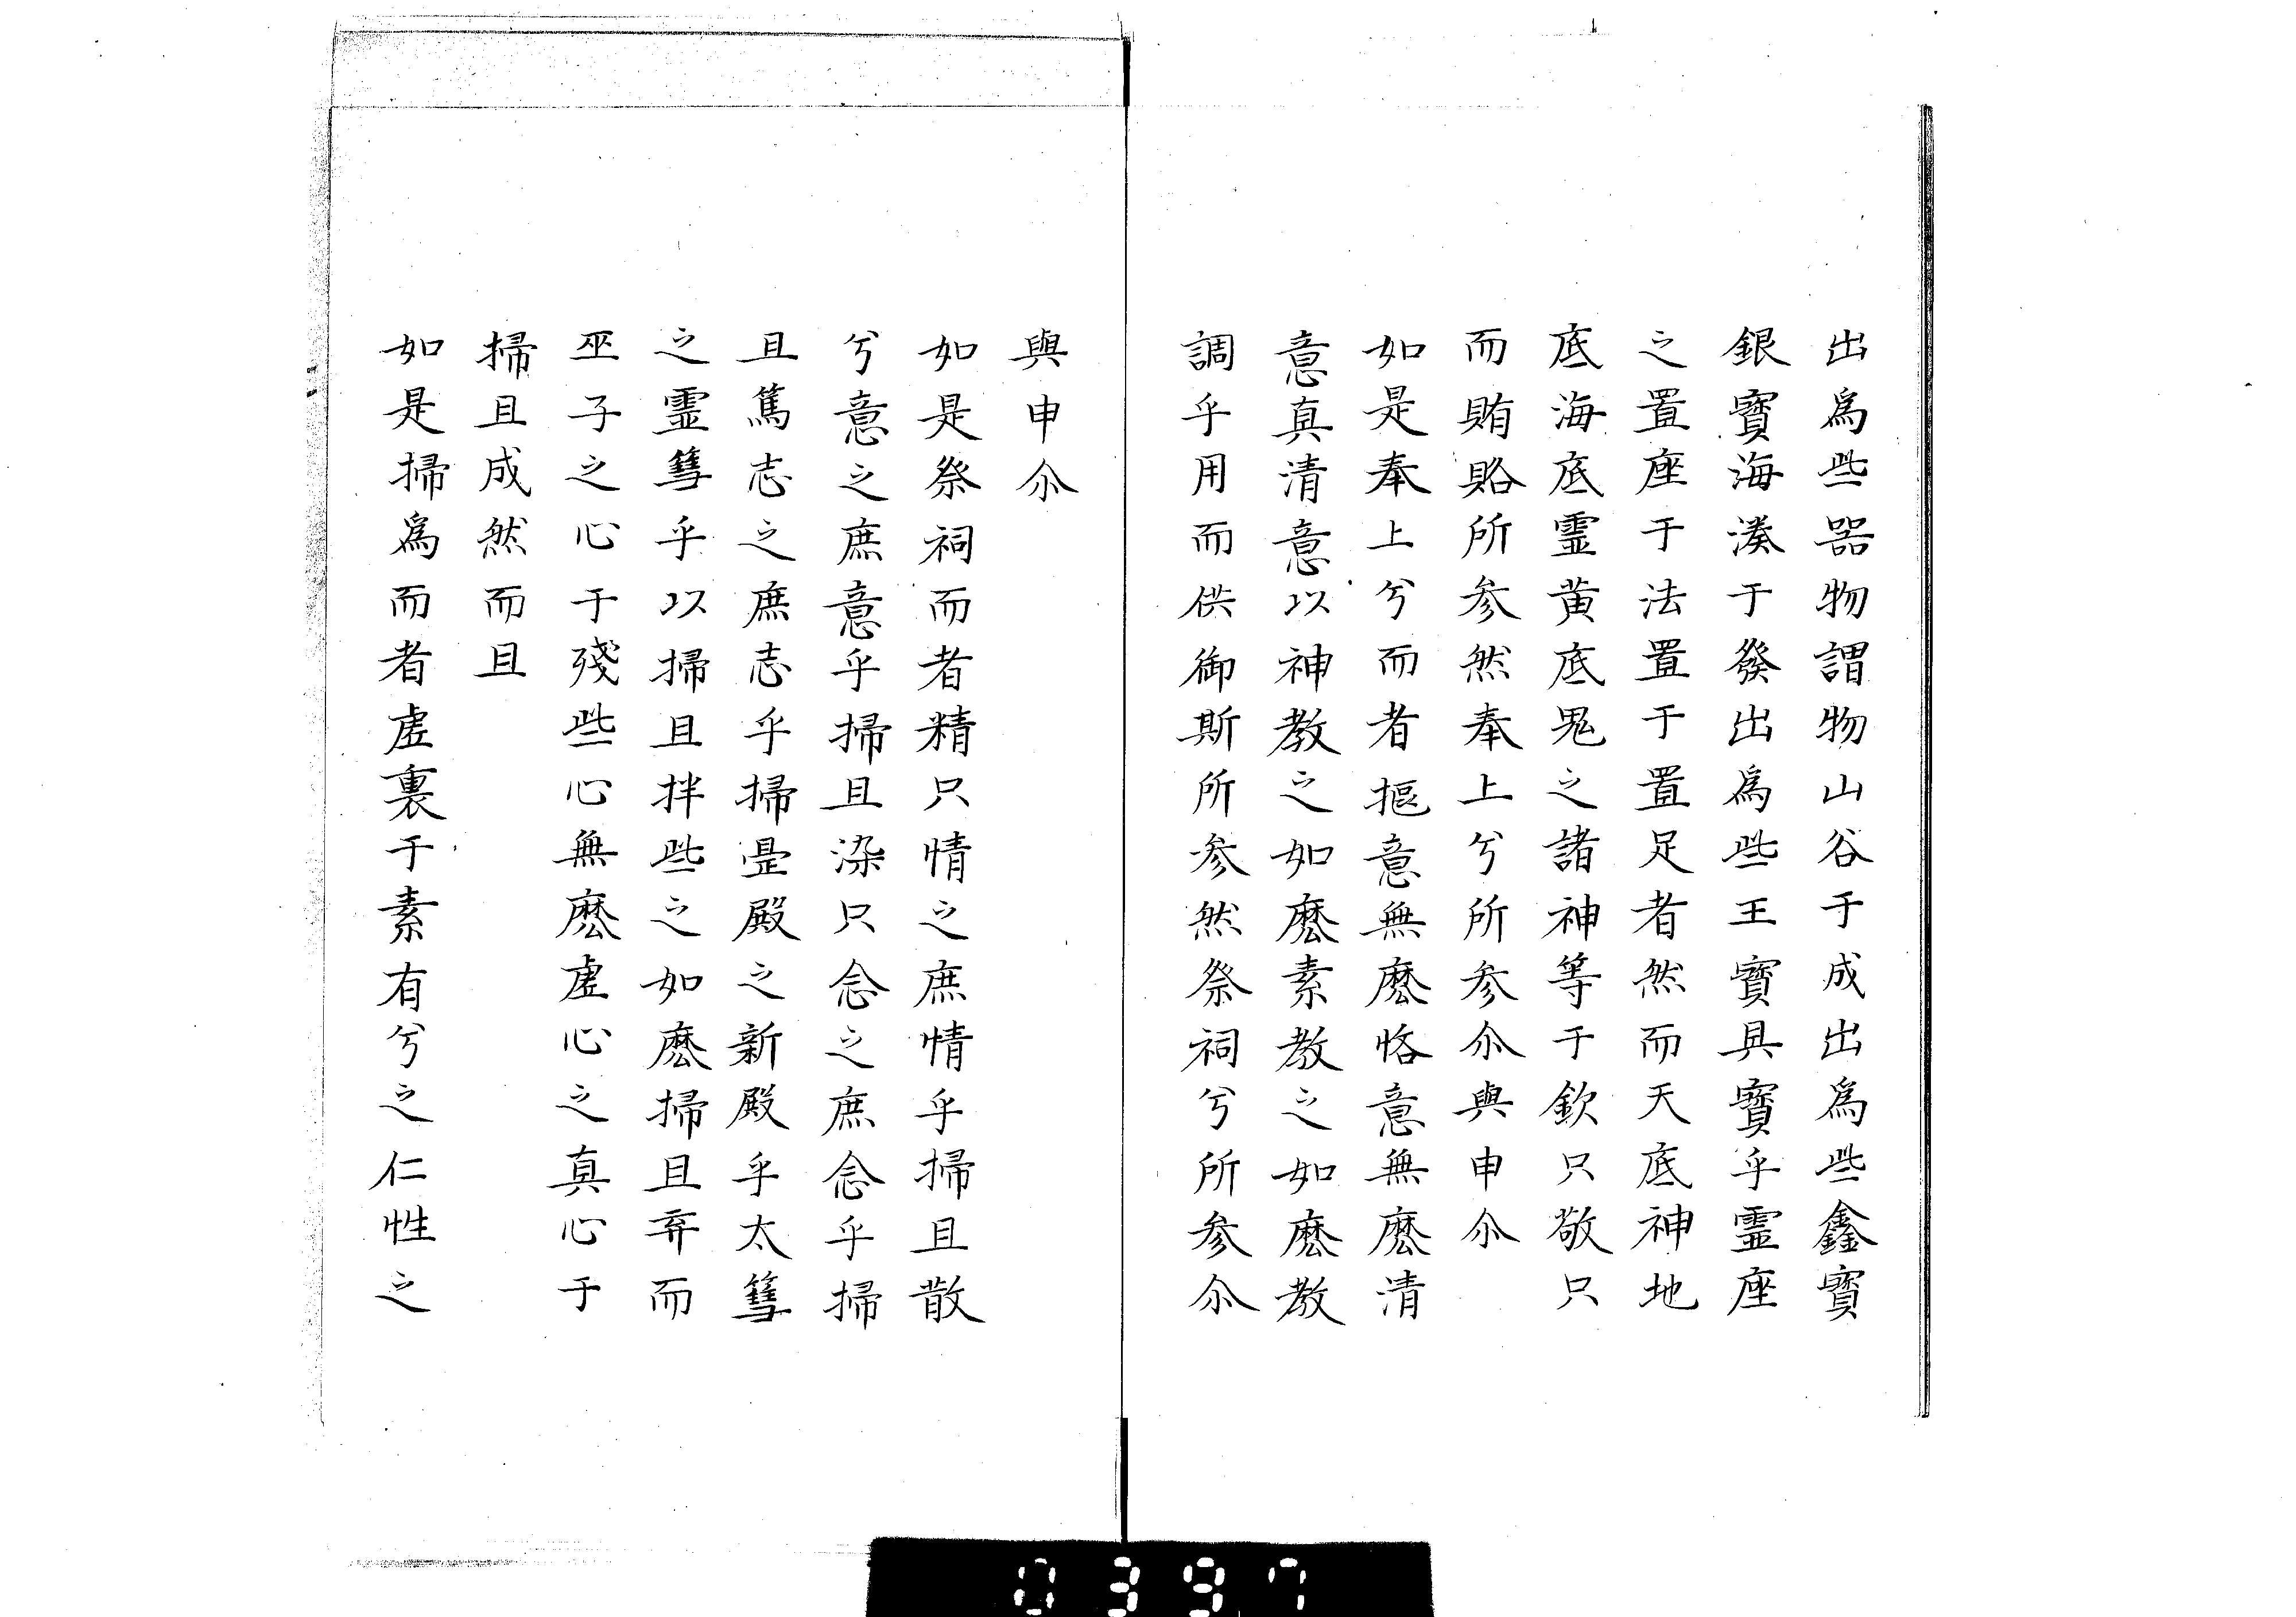 出爲些器物謂物山谷于成出爲些鑫寶
銀寶海湊于發出爲些王寶具寶乎霊座
之置座于法置于置足者然而天底神地
底海底霊黄底鬼之諸神等于欽只敬只
而賄賂所参然奉上兮所参尒與申尒
如是奉上兮而者摳意無麽悋意無麽清
意真清意以神教之如麽素教之如麽教
調乎用而供御斯所参然祭祠兮所参尒
與申尒
如是祭祠而者精只情之庶情乎掃且散
兮意之庶意乎掃且染只念之庶念乎掃
且篤志之庶志乎掃是殿之新殿乎太篲
之霊彗乎以掃且拌些之如麽掃且弃而
巫子之心于殘些心無麽虚心之真心于
掃且成然而且
如是掃爲而者虚裏于素有兮之仁性之
0397